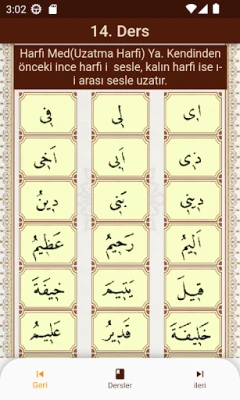 3:02
14. Ders
Harfi Med(Uzatma Harfi) Ya. Kendinden
önceki ince harfi i  sesle, kalın harfi ise ı-
i arası sesle uzatır.
اِى لِى فِى
ذِى اَبِى اَخِى
دِينِى بَنِى دِينُ
اَلِيمُ رَحِيمُ عَظِيمُ
قِيلَ يَتِيمَ خِيفَةَ
خَلِيفَةَ قَدِيرُ عَلِيمُ
Geri Dersler ileri